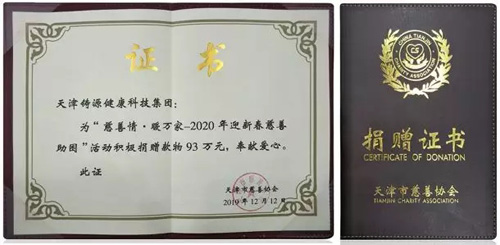 证书
天津传源健康科技集团：
为“慈善情·暖万家–2020年迎新春慈善
助困”活动积极捐赠款物93万元，奉献爱心。
此证
天津市慈善协会
2019年12月12日
CHINA TIANJIN
CHARITY ASSOCIATION
捐赠证书
CERTIFICATE OF DONATION
天津市慈善协会
TIANJIN CHARITY ASSOCIATION